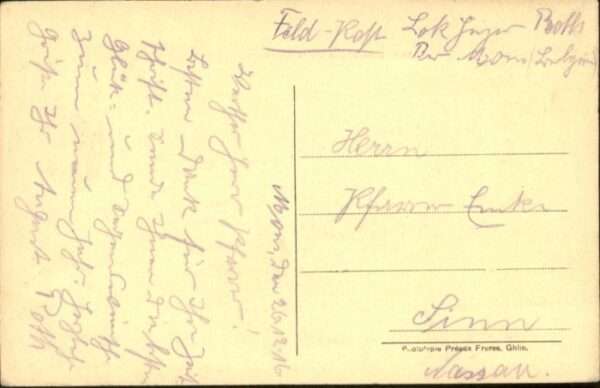 Feld-Post Lok Heizer Roth
Mons (Belgien)
Mons, den 26.12.16
Werther Herr Pfarrer!
Besten Dank für Ihre
Schrift. Sende Ihnen die besten
Glück- und Segenswünsche
zum neuen Jahr. Herzliche
Grüße Ihr August Roth
Herrn
Pfarrer
Sinn
Phototypie Préaux Frères, Ghlin.
Nassau.